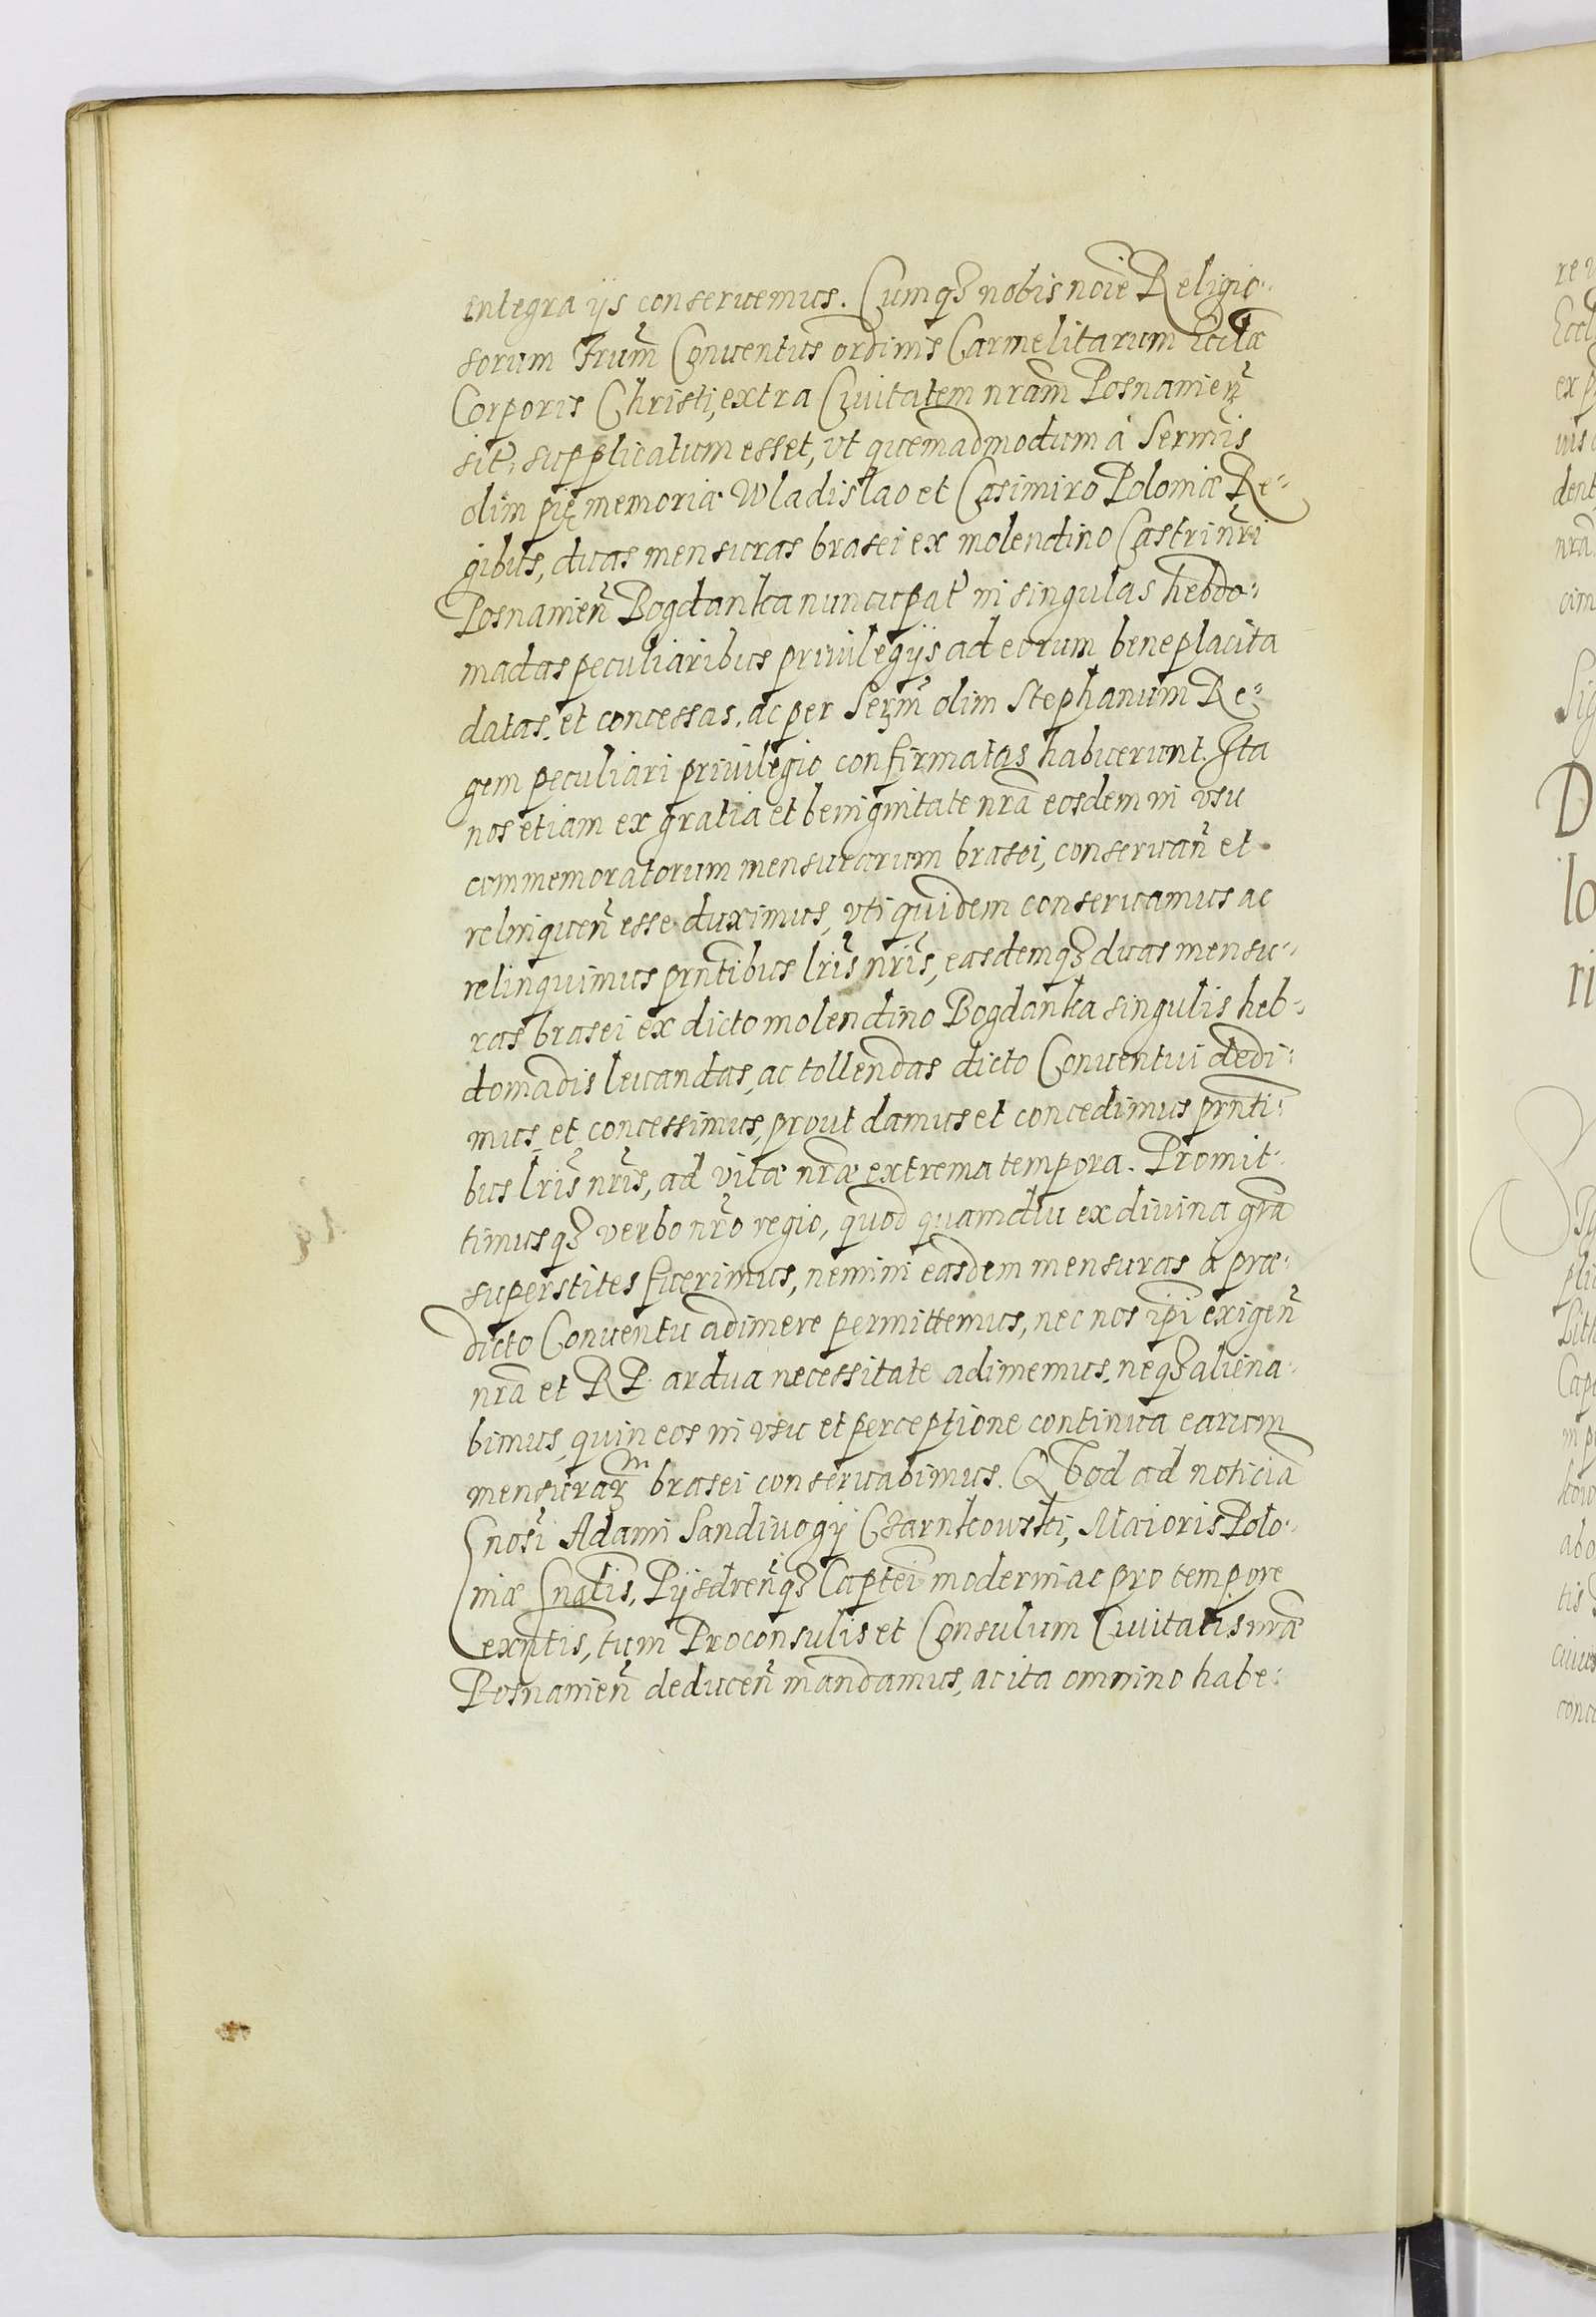 integra ijs conseruemus. Cumqȝ nobis noīe Religio-
sorum Frum̃ Conuentus ordinis Carmelitarum Eccl̃æ
Corporis Christi, extra Ciuitatem nr̃am Posnanieñ
sit̃, supplicatum esset, vt quemadmodum à Serm̃is
olim pię memoriæ Wladislao et Casimiro Poloniæ Re-
gibus, duas mensuras brasei ex molendino Castri nr̃i
Posnanieñ Bogdanka nuncupat̃ in singulas hebdo-
madas peculiaribus priuilegijs ad eorum beneplacita
datas, et concessas, ac per Serm̃ olim Stephanum Re-
gem peculiari priuilegio confirmatas habuerunt. Ita
nos etiam ex gratia et benignitate nr̃a eosdem in vsu
commemoratorum mensurarum brasei, conseruañ et
relinqueñ esse duximus, vti quidem conseruamus ac
relinquimus prñtibus lr̃is nr̃is, easdemqȝ duas mensu-
ras brasei ex dicto molendino Bogdanka singulis heb-
domadis leuandas, ac tollendas dicto Conuentui dedi-
mus, et concessimus, prout damus et concedimus prñti-
bus lr̃is nr̃is, ad vitæ nr̃æ extrema tempora. Promit-
timusqȝ verbo nr̃o regio, quod quamdiu ex diuina gr̃a
superstites fuerimus, nemini easdem mensuras à præ-
dicto Conuentu adimere permittemus, nec nos ip̃i exigeñ
nr̃a et R P. ardua necessitate adimemus, neqȝ aliena-
bimus, quin eos in vsu et perceptione continua earum
mensuraȝm brasei conseruabimus. Quod ad noticiã
Gnosĩ Adami Sandiuogij Czarnkowski, Maioris Polo-
niæ Gnal̃is, Pijsdreñqȝ Captẽi moderni ac pro tempore
exñtis, tum Proconsulis et Consulum Ciuitatis nr̃æ
Posnanieñ deduceñ mandamus, ac ita omnino habe-